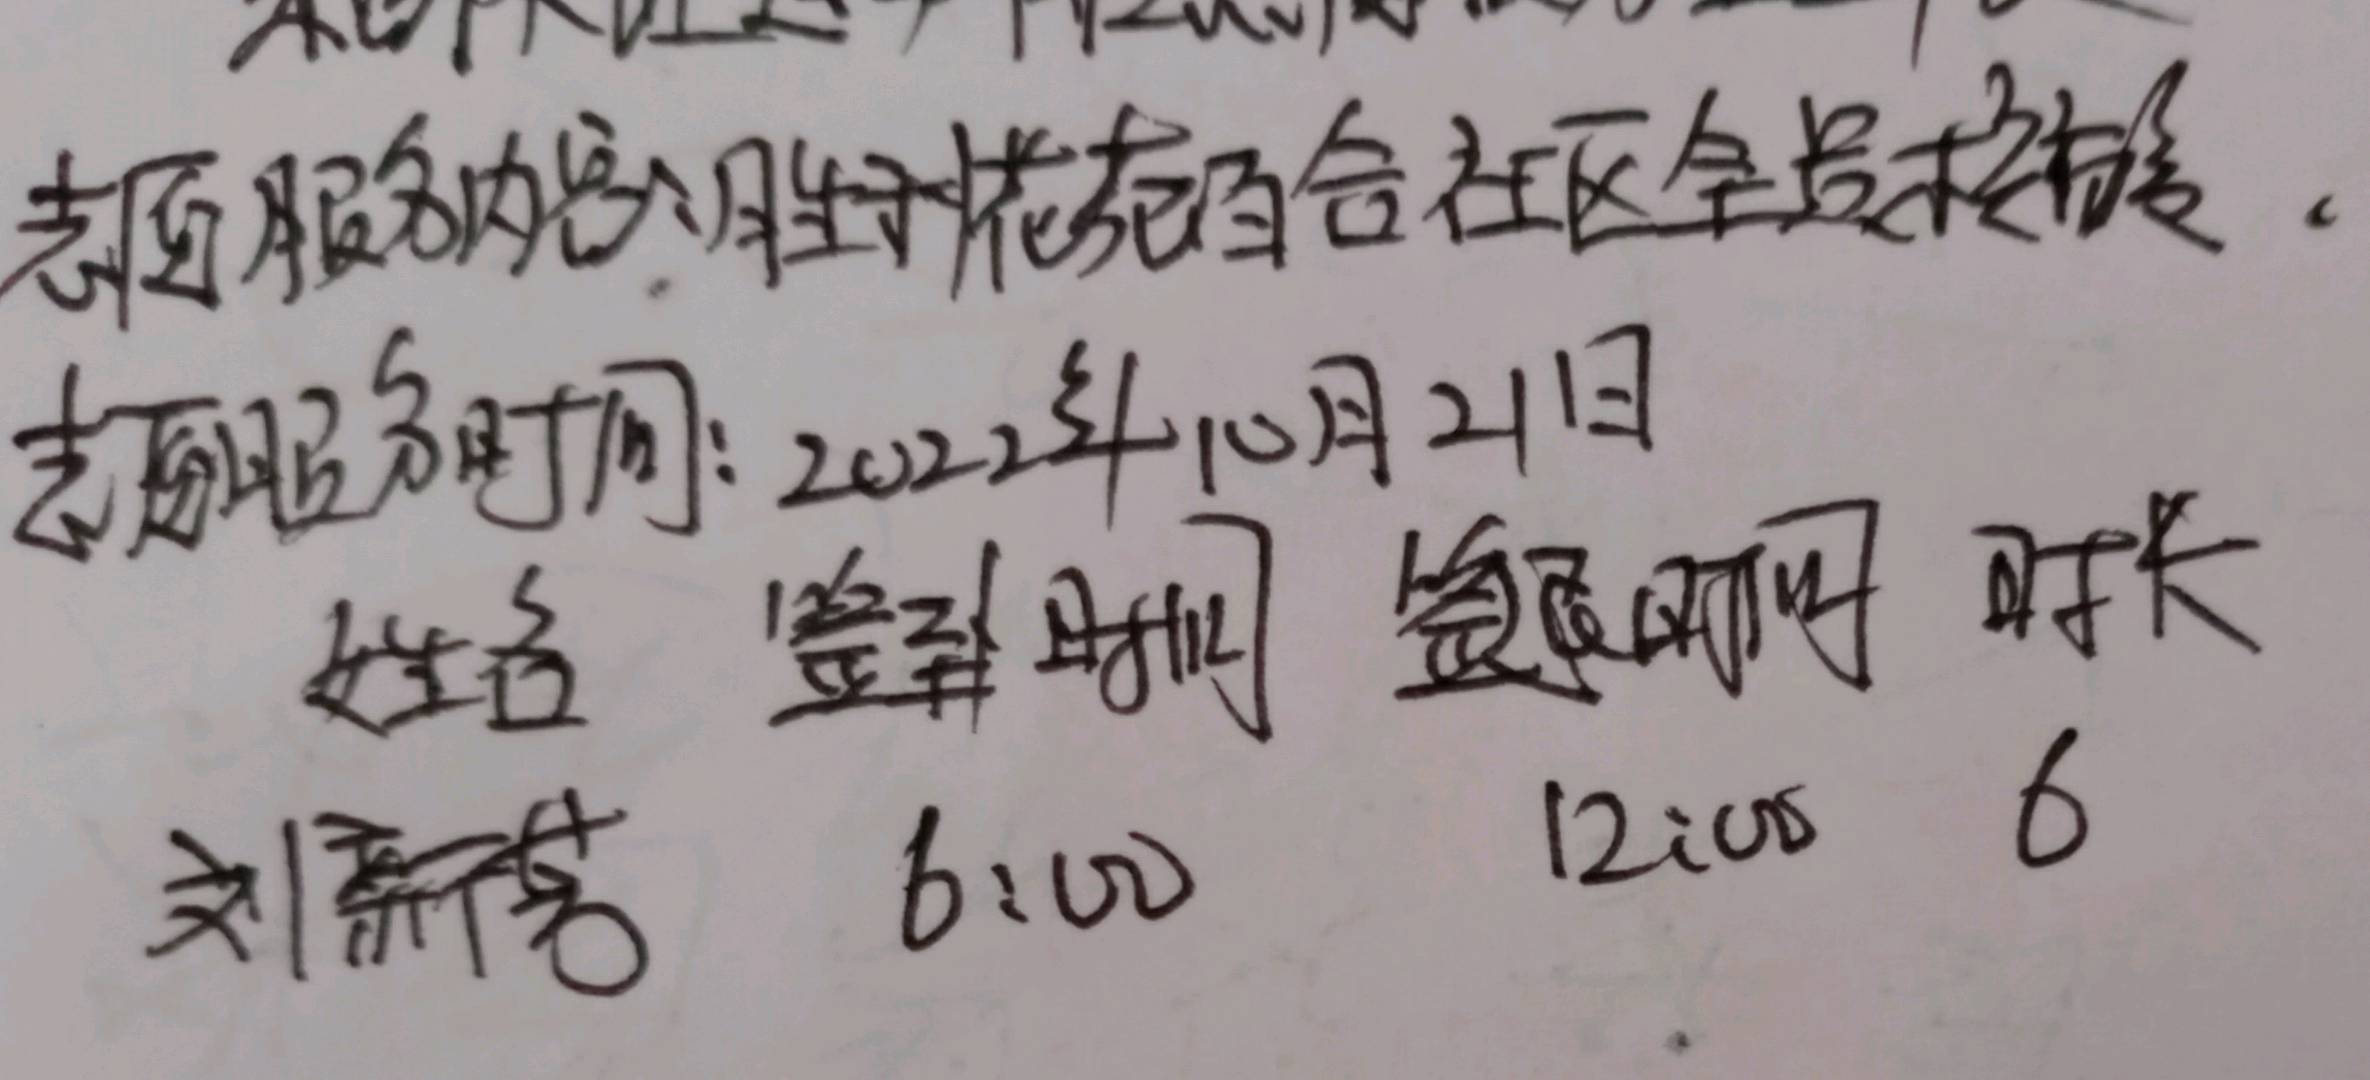 志愿服务内容:胜于花苑百合社区全员核酸.
志愿服务时间:2022年10月21日
姓名 签到时间 签退时间 时长
刘新 6:00 12:00 6